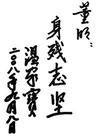 董明：
身残志坚
温家寶
二〇〇八年九月八日